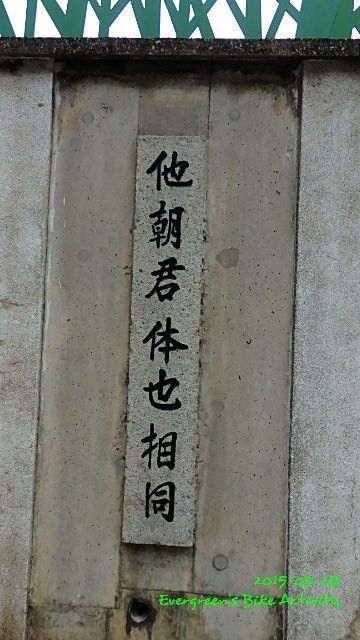 他朝君体也相同
2015.03.28
Evergreen's Bike Activity